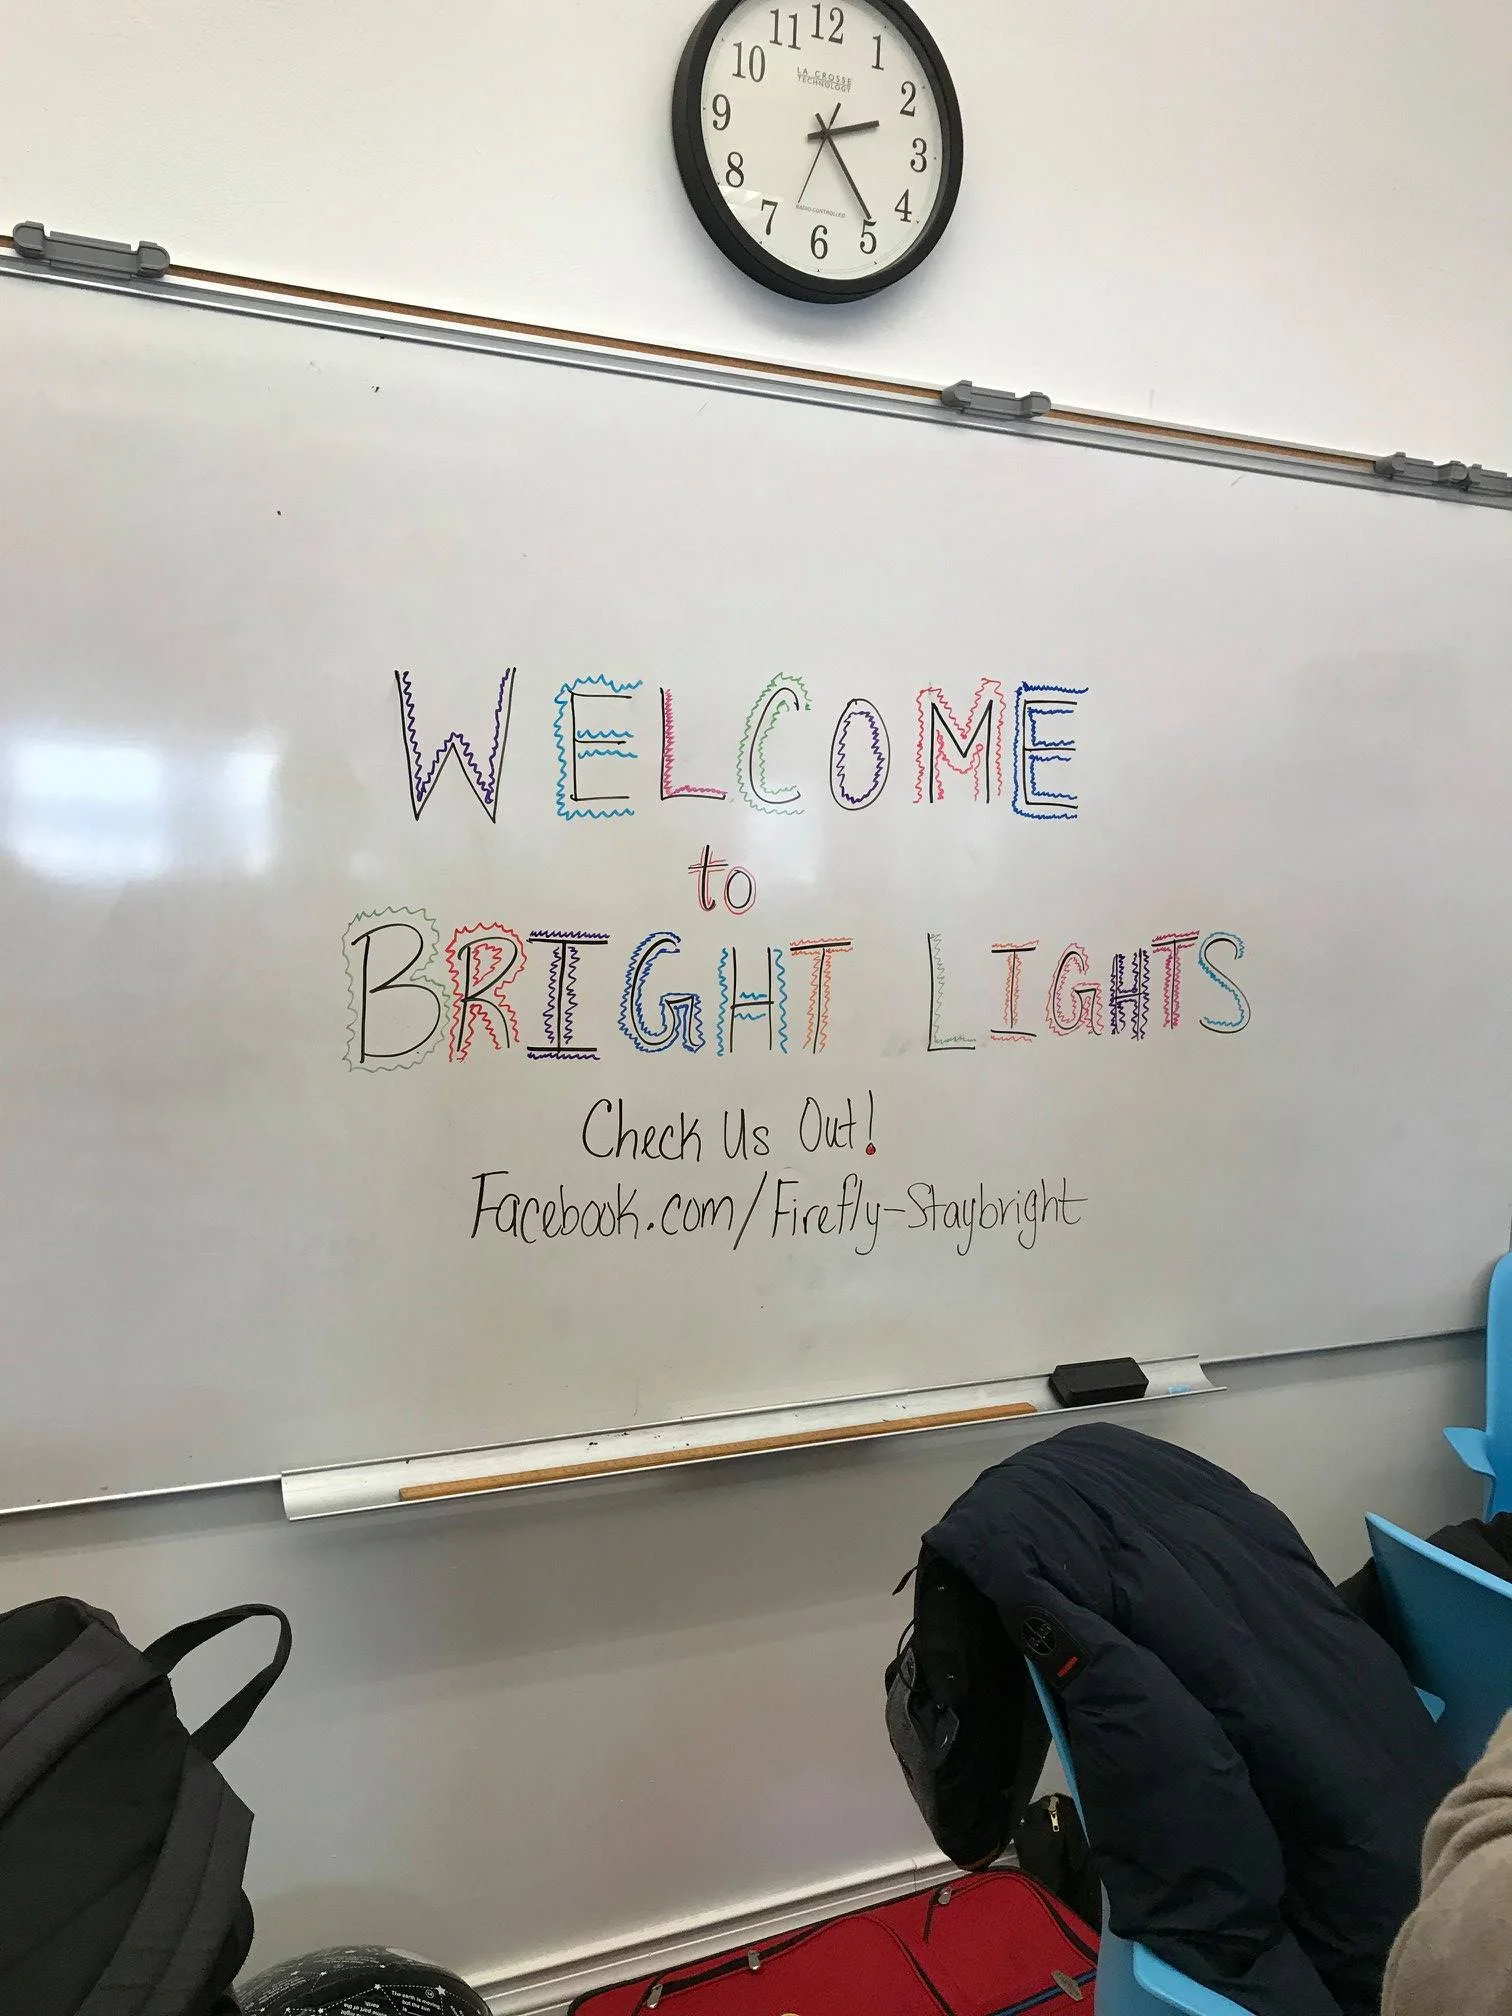 11 12 1
10 2
9 3
8 4
7 6 5
LA CROSSE
TECHNOLOGY
RADIO CONTROLLED
WELCOME
to
BRIGHT LIGHTS
Check Us Out!
Facebook.com/Firefly-Staybright
The earth is moving